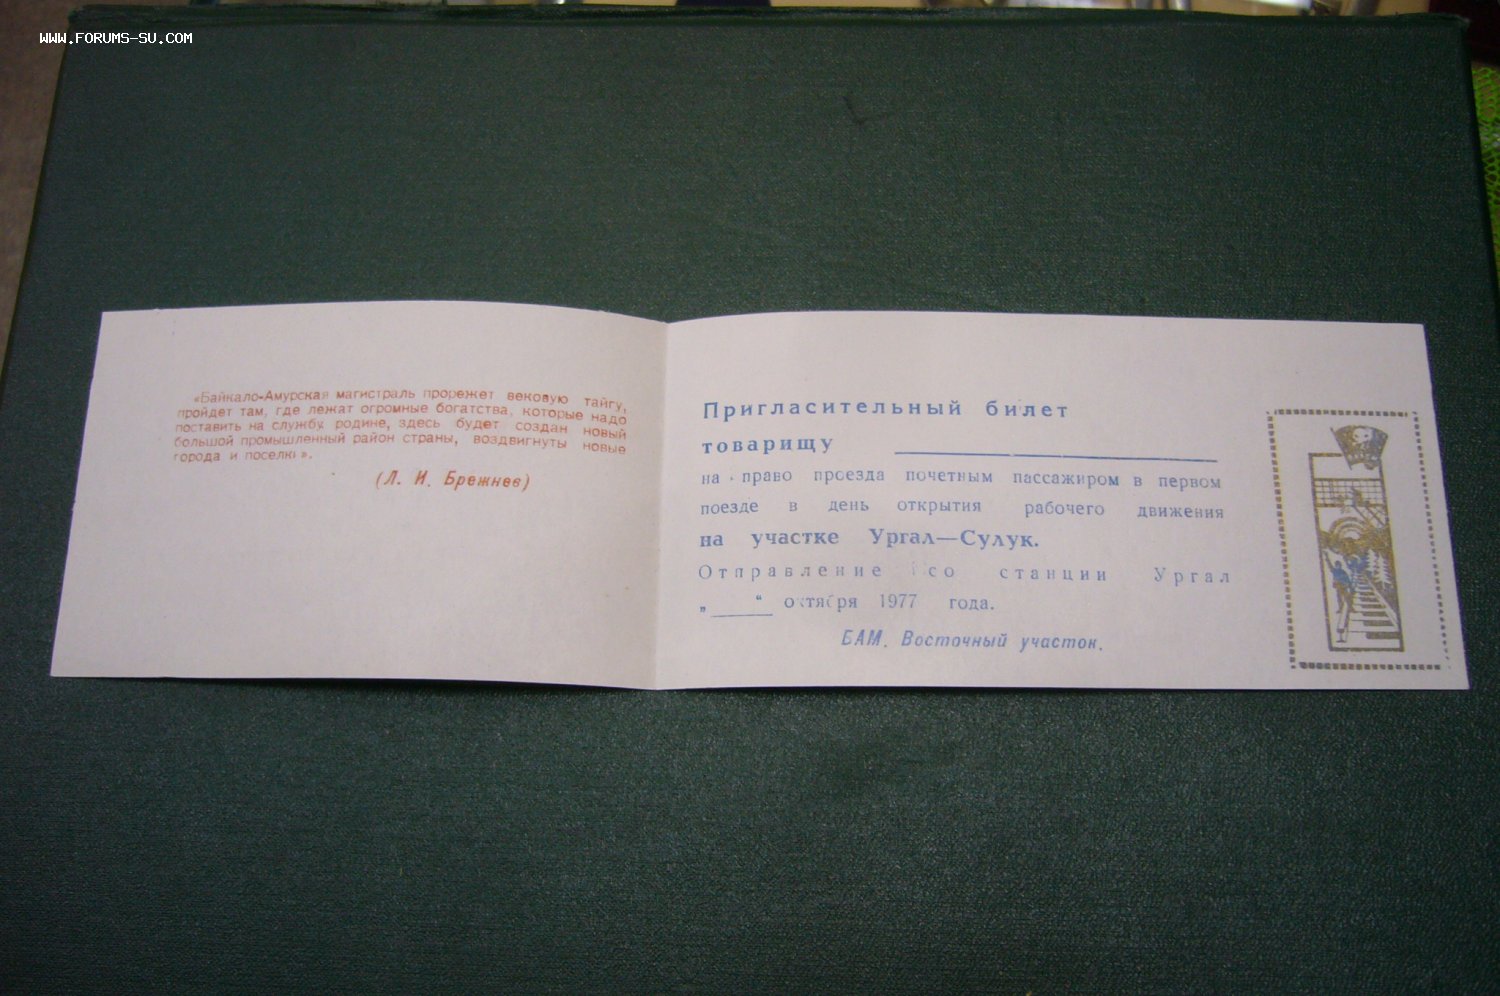 WWW.FORUMS-SU.COM
«Байкало-Амурская магистраль прорежет вековую тайгу,
пройдет там, где лежат огромные богатства, которые надо
поставить на службу родине, здесь будет создан новый
большой промышленный район страны, воздвигнуты новые
города и поселки».
(Л. И. Брежнев)
Пригласительный билет
товарищу
на право проезда почетным пассажиром в первом
поезде в день открытия рабочего движения
на участке Ургал—Сулук.
Отправление со станции Ургал
„ “ октября 1977 года.
БАМ. Восточный участок.